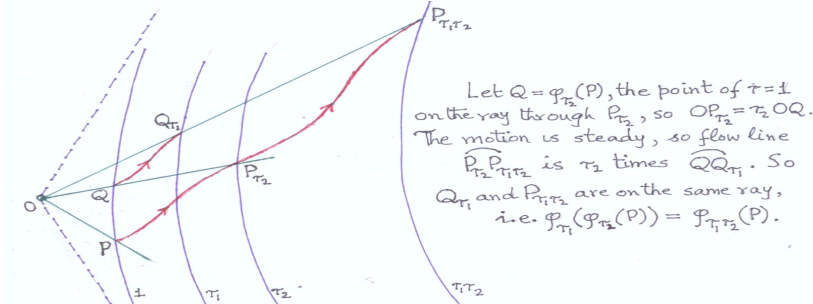 P_τ₁τ₂
Q_τ₁
P_τ₂
O
Q
P
1
τ₁
τ₂
τ₁τ₂
Let Q = φ_τ₂(P), the point of τ=1
on the ray through P_τ₂, so OP_τ₂ = τ₂ OQ.
The motion is steady, so flow line
P_τ₂P_τ₁τ₂ is τ₂ times QQ_τ₁. So
Q_τ₁ and P_τ₁τ₂ are on the same ray,
i.e. φ_τ₁(φ_τ₂(P)) = φ_τ₁τ₂(P).